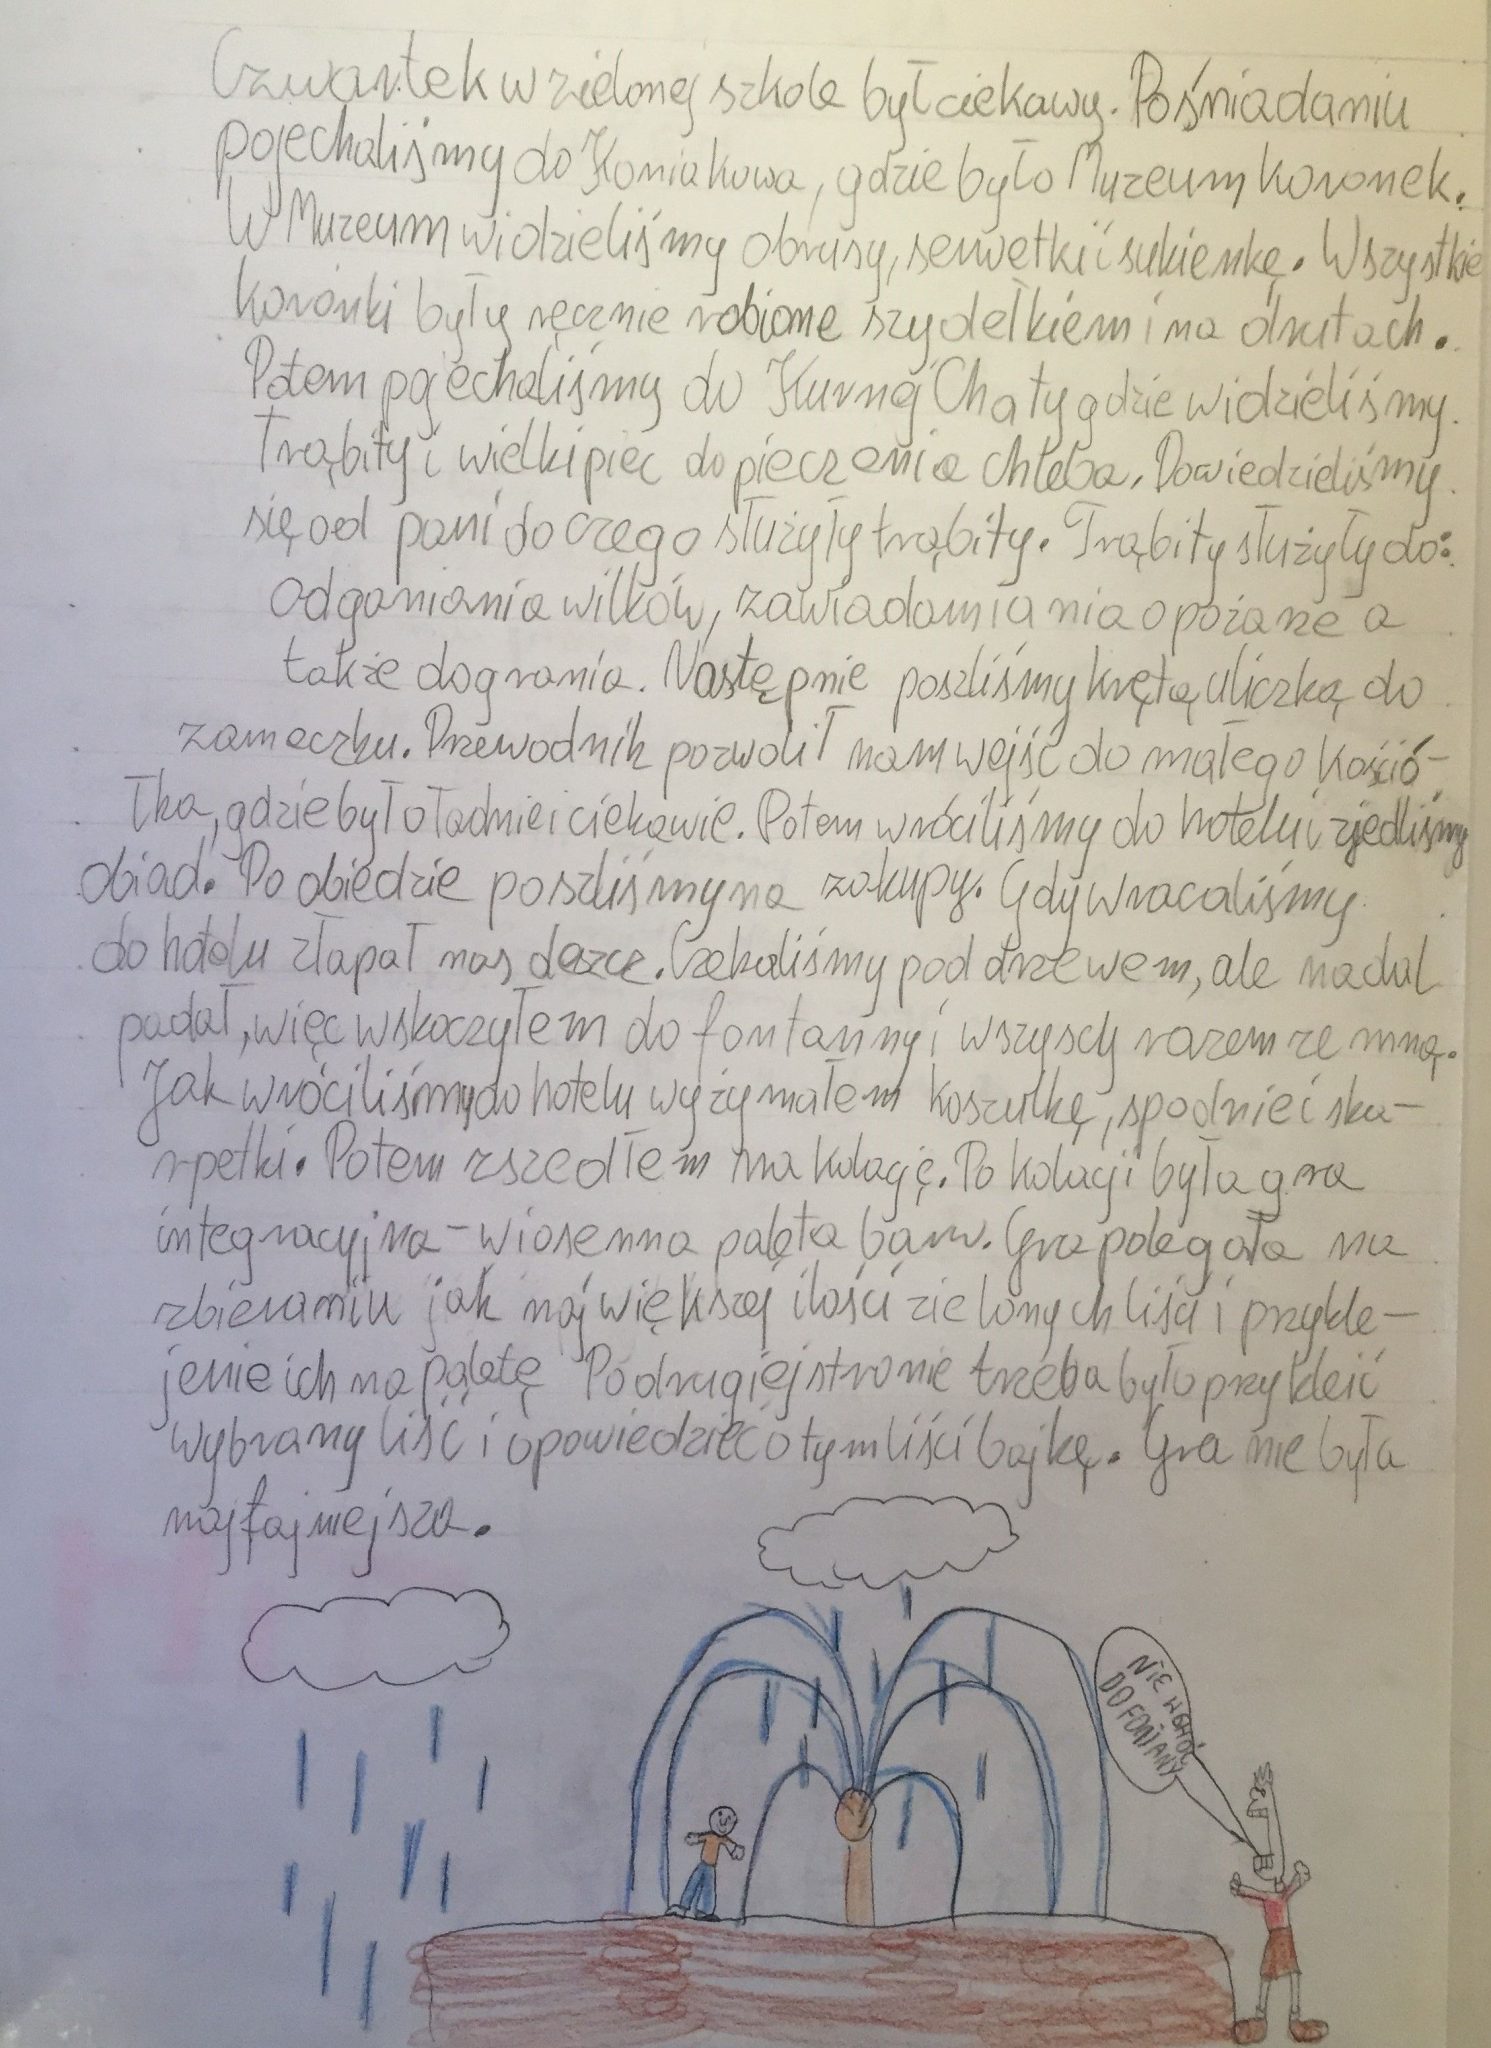 Czwartek w zielonej szkole był ciekawy. Po śniadaniu
pojechaliśmy do Koniakowa, gdzie było Muzeum koronek.
W Muzeum widzieliśmy obrusy, serwetki i sukienkę. Wszystkie
koronki były ręcznie robione szydełkiem i na drutach.
Potem pojechaliśmy do Kurnej Chaty gdzie widzieliśmy
Trąbity i wielki piec do pieczenia chleba. Dowiedzieliśmy
się od pani do czego służyły trąbity. Trąbity służyły do:
odganiania wilków, zawiadamiania o pożarze a
także do grania. Następnie poszliśmy krętą uliczką do
zameczku. Przewodnik pozwolił nam wejść do małego kośció-
łka, gdzie było ładnie i ciekawie. Potem wróciliśmy do hotelu i zjedliśmy
obiad. Po obiedzie poszliśmy na zakupy. Gdy wracaliśmy
do hotelu złapał nas deszcz. Czekaliśmy pod drzewem, ale nadal
padał, więc wskoczyłem do fontanny i wszyscy razem ze mną.
Jak wróciliśmy do hotelu wyżymałem koszulkę, spodnie i ska-
rpetki. Potem zszedłem na kolację. Po kolacji była gra
integracyjna - wiosenna paleta barw. Gra polegała na
zbieraniu jak największej ilości zielonych liści i przykle-
jenie ich na paletę Po drugiej stronie trzeba było przykleić
wybrany liść i opowiedzieć o tym liści bajkę. Gra nie była
najfajniejsza.
NIE
DO